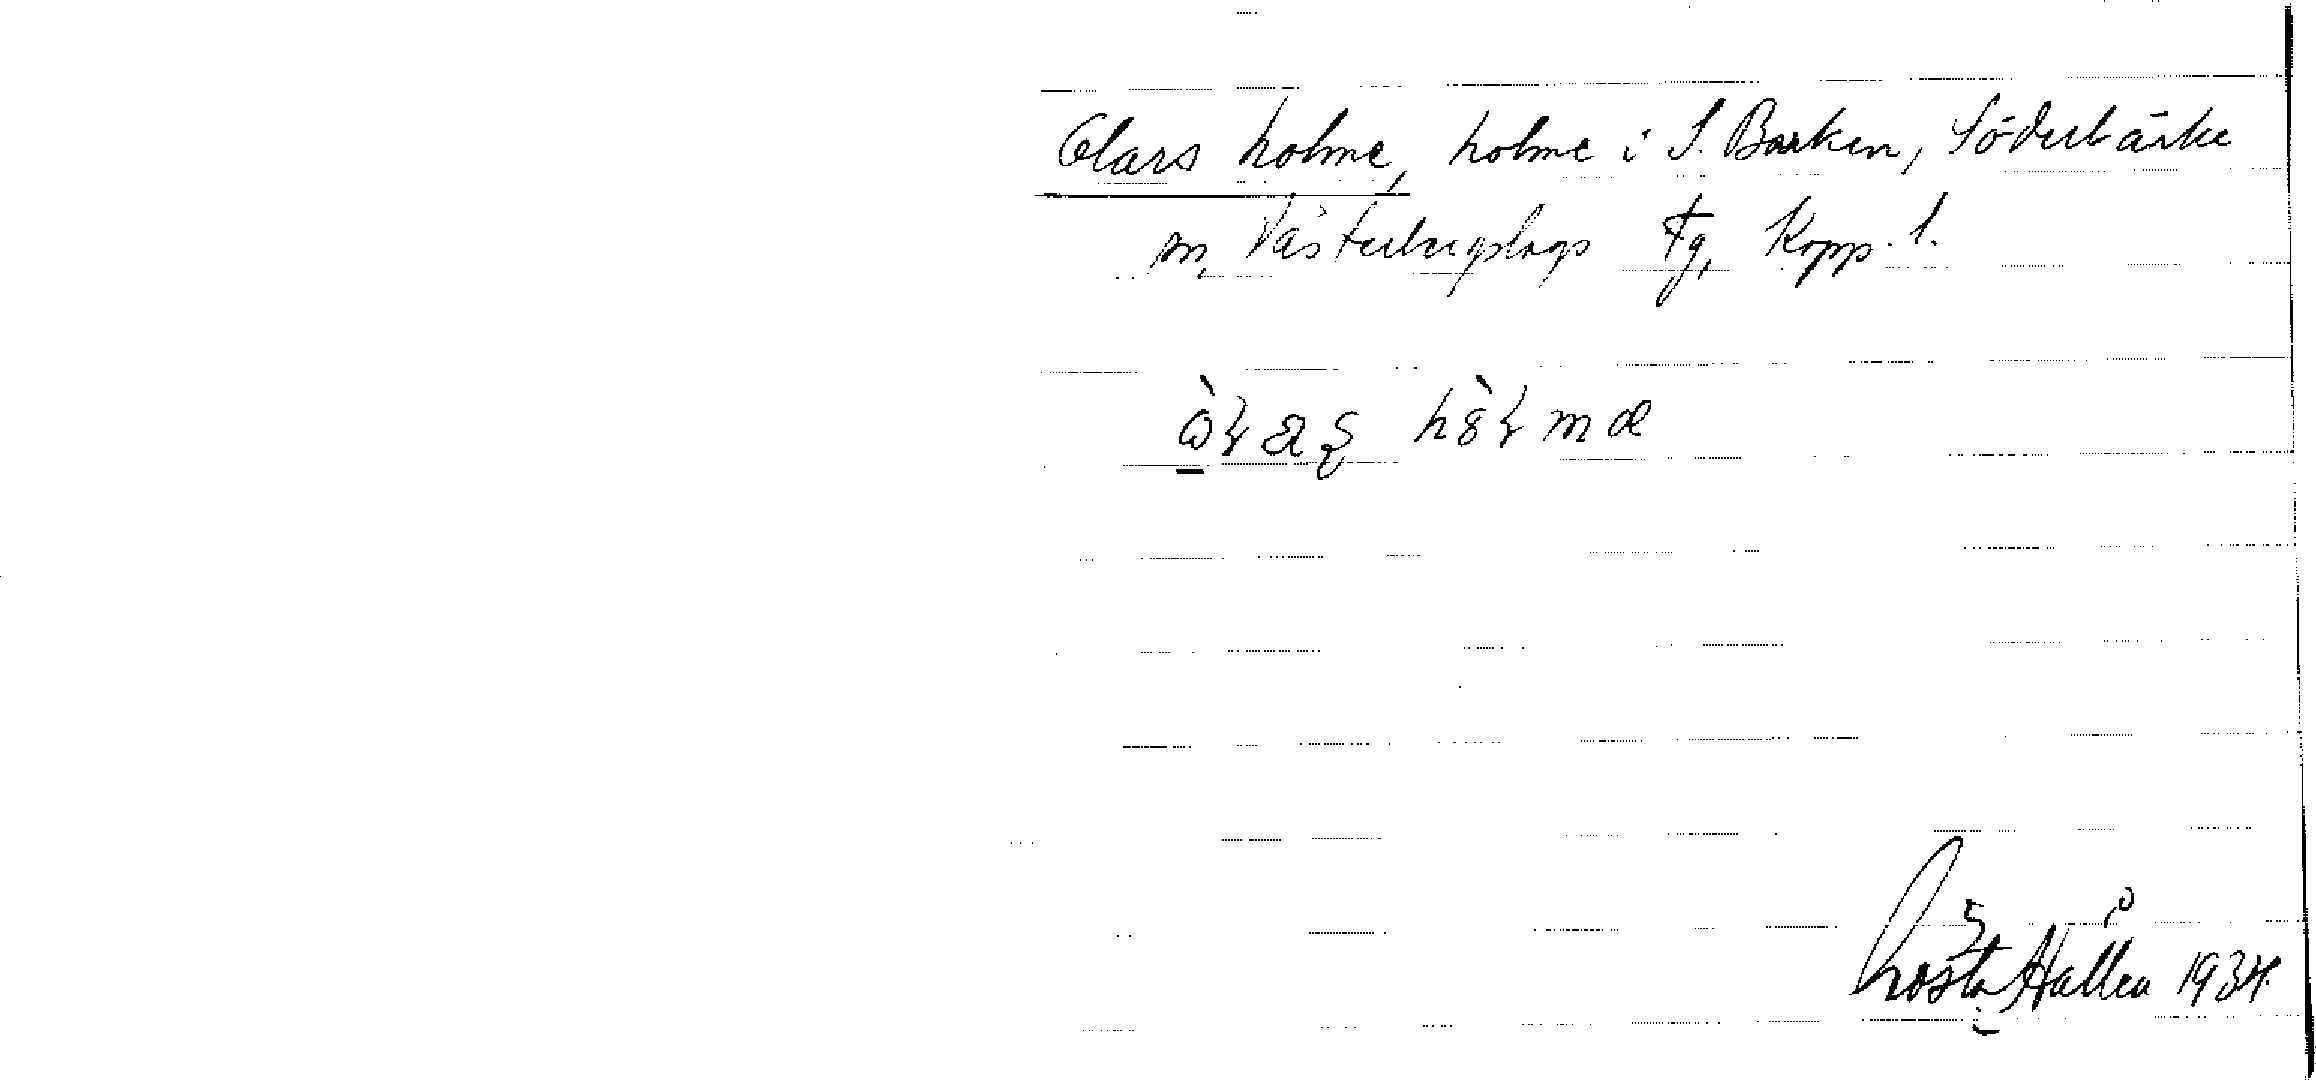 Olars holme, holme i S. Barken, Söderbärke
sn, Västerbergslags Tg, Kopp. l.
hòlmæ
Gösta Hallén 1934.